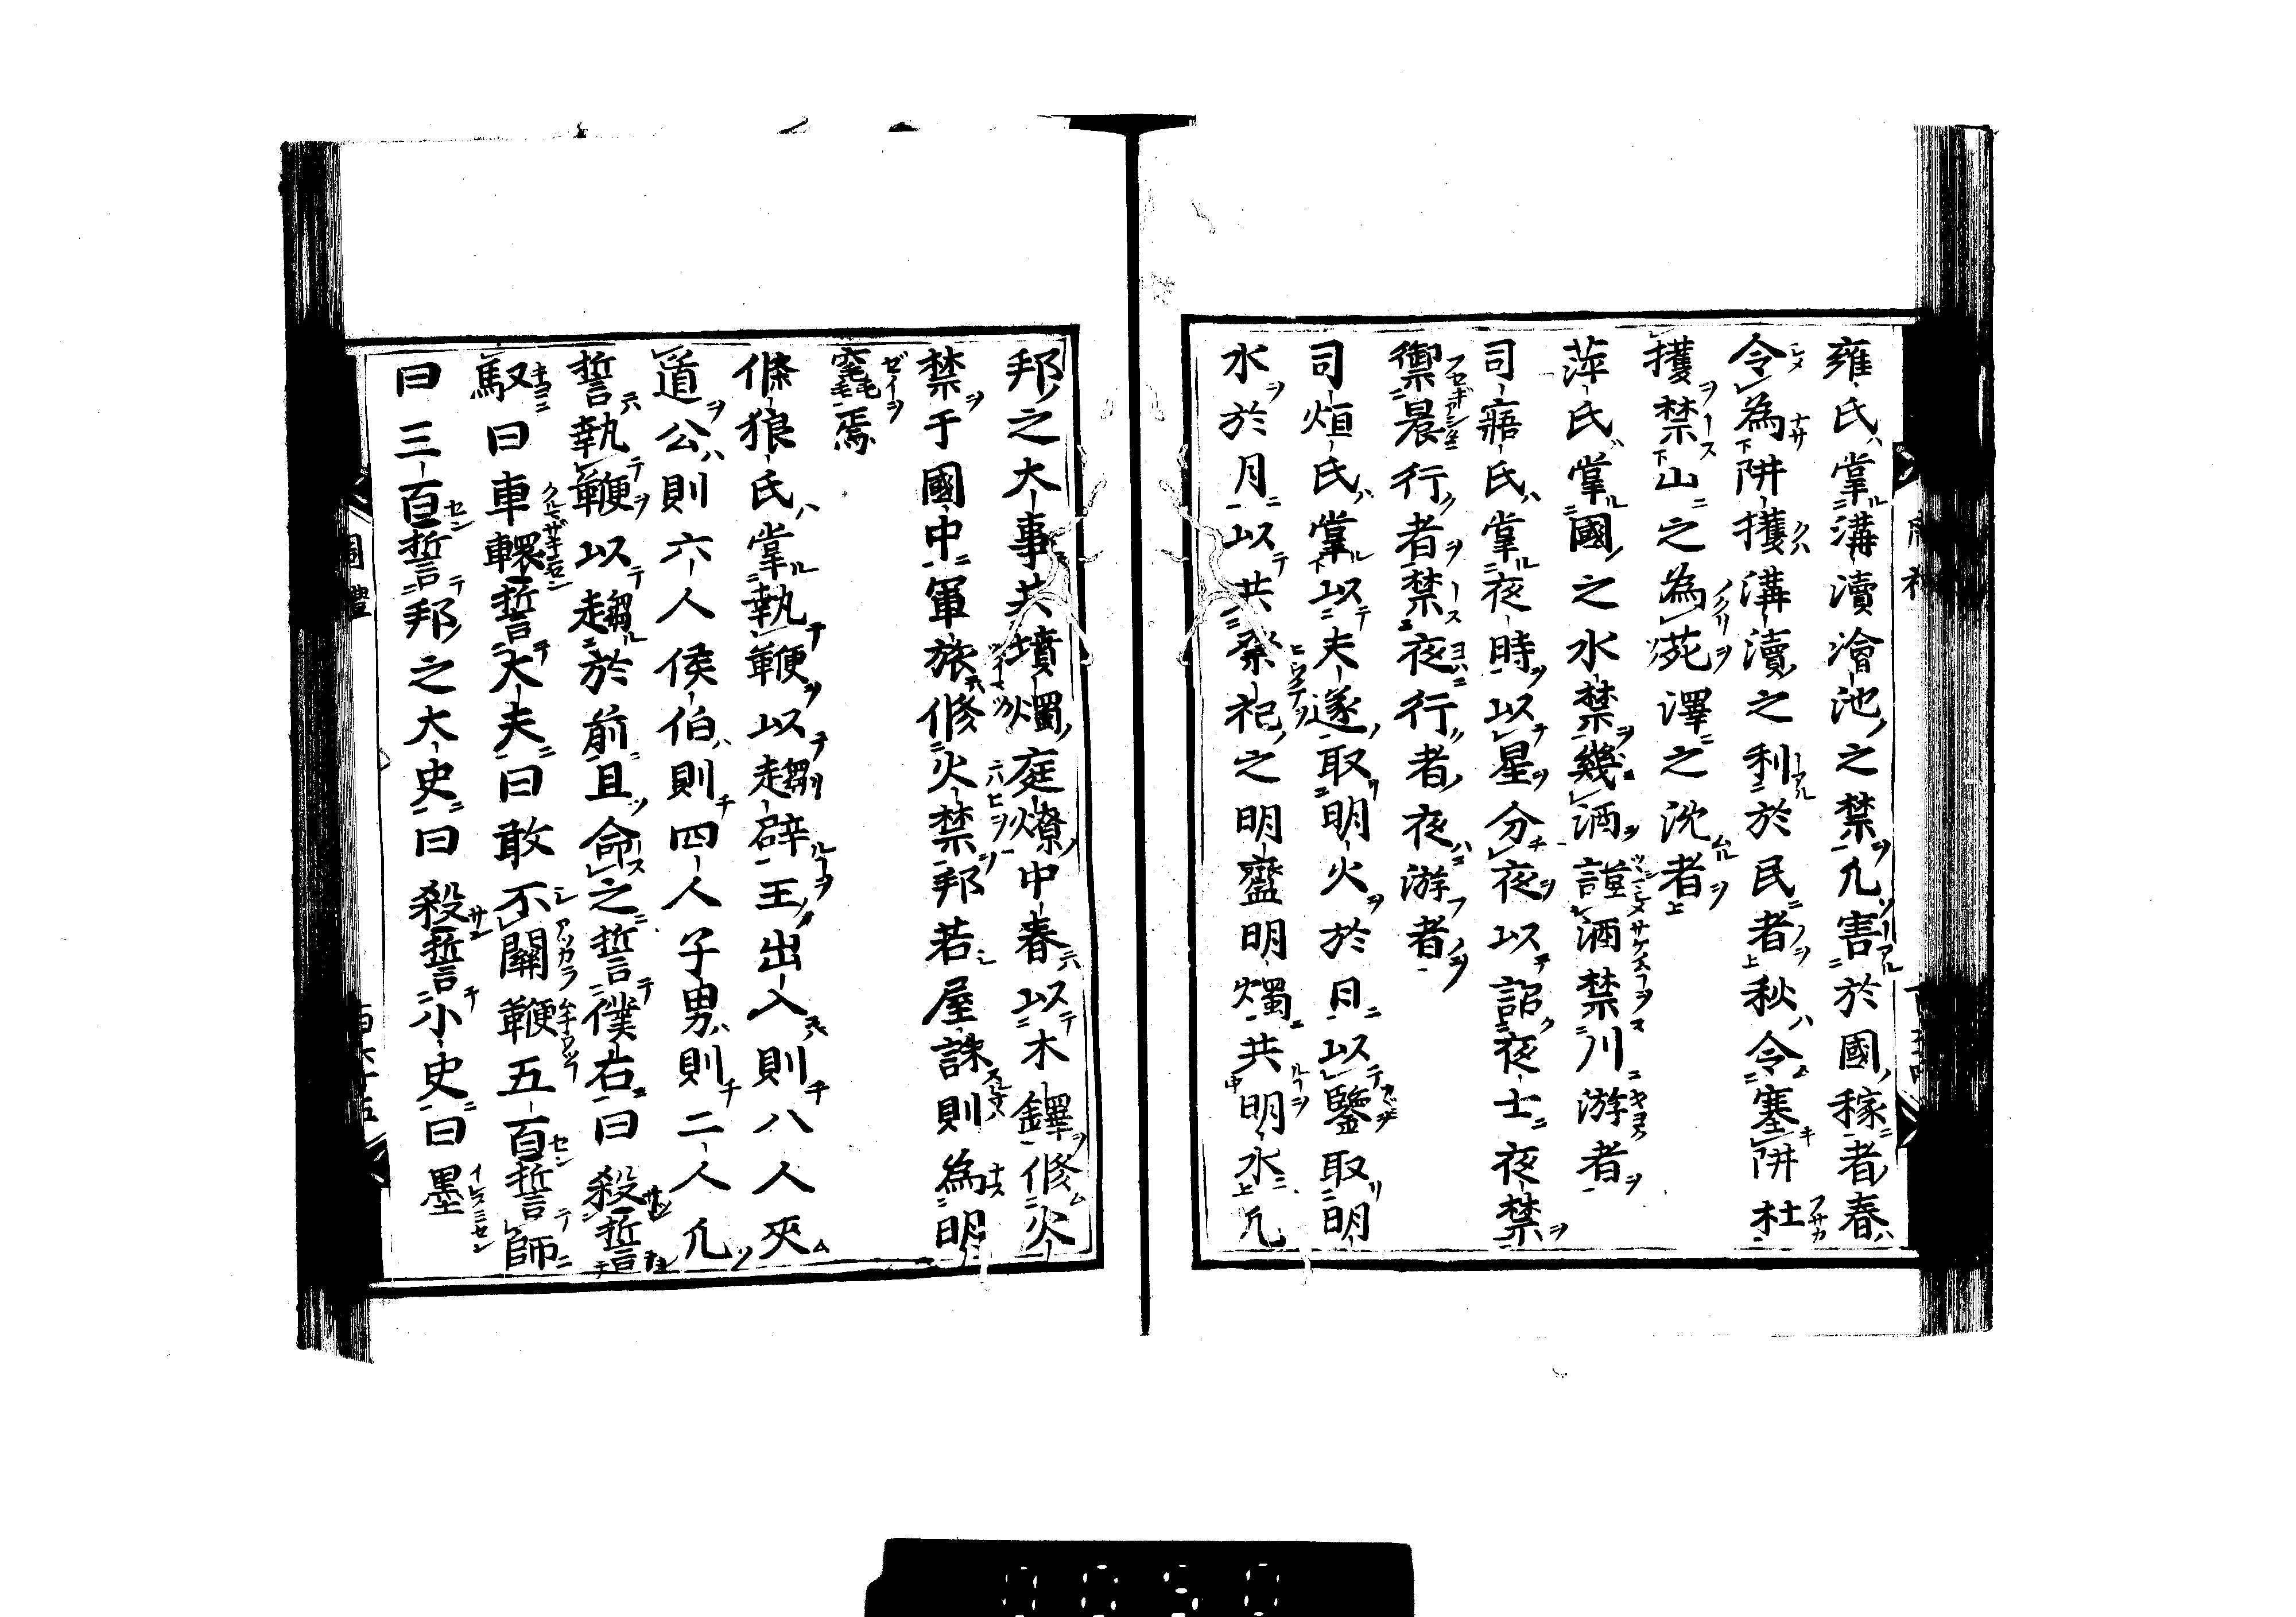 雍氏掌溝瀆澮池之禁凢害於國稼者春
令為阱擭溝瀆之利於民者秋令塞阱杜
擭禁山之為苑澤之沈者
萍氏掌國之水禁幾酒謹酒禁川游者
司寤氏掌夜時以星分夜以詔夜士夜禁
禦晨行者禁夜行者夜游者
司烜氏掌以夫遂取明火於日以鑒取明
水於月以共祭祀之明齍明燭共明水凢
邦之大事共墳燭庭燎中春以木鐸修火
禁于國中軍旅修火禁邦若屋誅則為明
竁焉
條狼氏掌執鞭以趨辟王出入則八人夾
道公則六人侯伯則四人子男則二人凢
誓執鞭以趨於前且命之誓僕右曰殺誓
馭曰車轘誓大夫曰敢不關鞭五百誓師
曰三百誓邦之大史曰殺誓小史曰墨